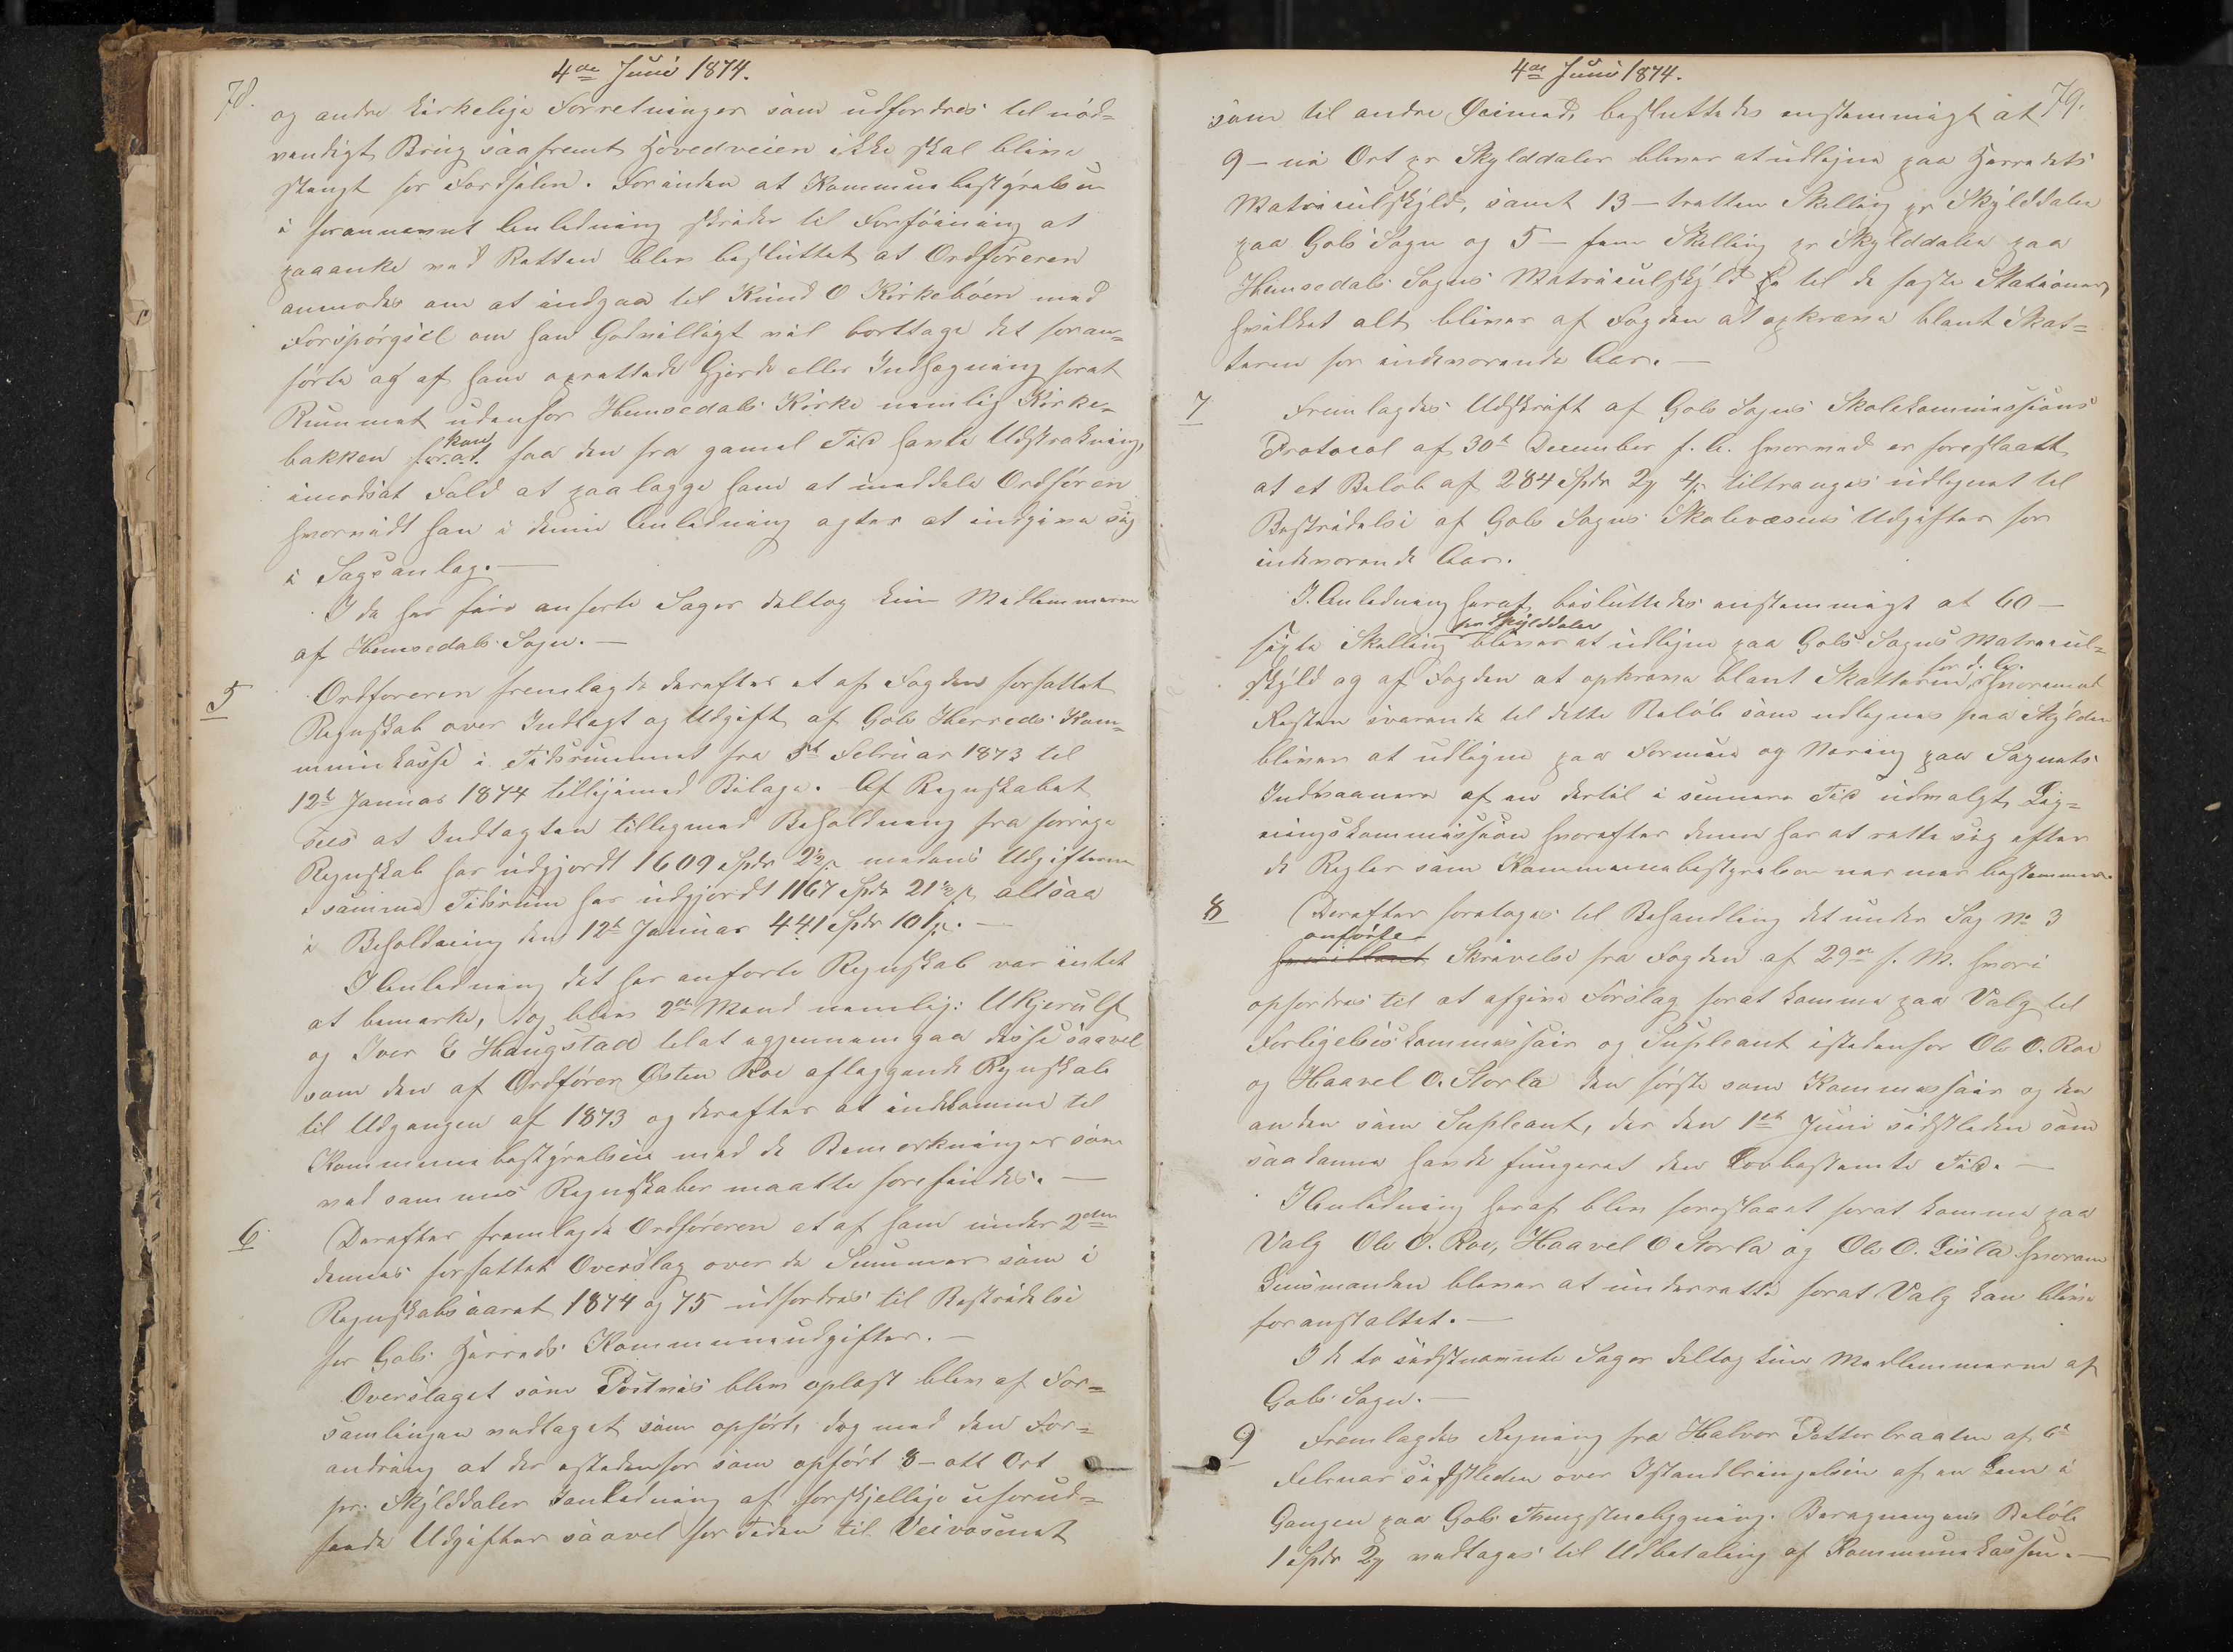 78.
4de Juni 1874.
og andre kirkelige Forretninger som udfordres til nød=
vendigt Brug saafremt Hovedveien ikke skal blive
stængt for Færdselen. Forinden at Kommunebestyrelsen
i forannævnt Anledning skrider til Forføining at
paaanke ved Retten blev besluttet at Ordføreren
anmodes om at indgaa til Knud O Kirkebøen med
Forspørgsel om han Godvilligt vil borttage det foran=
førte og af ham oprettede Gjerde eller Indhegning forat
Rummet udenfor Hemsedals Kirke nemlig Kirke=
bakken forat kan faa den fra gamel Tid havte Udstrækning,
imodsat Fald at paalægge ham at meddele Ordføreren
hvorvidt han i denne Anledning agter at indgive sig
i Sagsanlæg. —
I de her före anførte Sager deltog kun Medlemmerne
af Hemsedals Sogn. —
5 Ordføreren fremlagde derefter et af Fogden forfattet
Regnskab over Indtægt og Udgift af Gols Herreds Kom=
munekasse i Tidsrummet fra 5te Februar 1873 til
12te Januar 1874 tilligemed Bilage. Af Regnskabet
sees at Indtægten tilligemed Beholdning fra forrige
Regnskab har udgjordt 1609 Spdr 2½ ß medens Udgifterne
i samme Tidsrum har udgjordt 1167 Spdr 21½ ß altsaa
i Beholdning den 12te Januar 441 Spdr 101 ß. —
I Anledning det her anførte Regnskab var intet
at bemærke, dog blev 2de Mænd nemlig: U Kjerulf
og Iver E Haugstad til at gjennemgaa disse saavel
som den af Ordfører Østen Roe aflæggende Regnskab
til Udgangen af 1873 og derefter at indkomme til
Kommunebestyrelsen med de Bemærkninger som
ved sammes Regnskaber maatte forefindes. —
6 Derefter fremlagde Ordføreren et af ham under 2den
dennes forfattet Overslag over de Summer som i
Regnskabsaaret 1874 og 75 udfordres til Bestridelse
for Gols Herreds Kommuneudgifter. —
Overslaget som Postvis blev oplæst blev af For=
samlingen vedtaget som opført, dog med den For=
andring at der istedenfor som opført 8 - ott Ort
pr. Skylddaler Ianledning af forskjellige uforud=
seede Udgifter saavel for Tiden til Veivæsenet
79.
4de Juni 1874.
som til andre Øiemed, besluttedes enstemmigt at
9 - ni Ort pr Skylddaler bliver at udligne paa Herredets
Matriculskyld, samt 13 - tretten Skilling pr Skylddaler
paa Gols Sogn og 5 - fem Skilling pr Skylddaler paa
Hemsedals Sogns Matriculskyld til de faste Stationer,
hvilket alt bliver af Fogden at opkræve blant Skat=
terne for indeværende Aar. —
7 Fremlagdes Udskrift af Gols Sogns Skolekommissions
Protocol af 30te December f. A. hvormed er foreslaaet
at et Beløb af 284 Spdr 2 ꝟ 4 ß tiltrænges udlignet til
Bestridelse af Gols Sogns Skolevæsens Udgifter for
indeværende Aar.
I Anledning heraf besluttedes enstemmigt at 60 —
sexti Skilling pr Skylddaler bliver at udligne paa Gols Sogns Matricul=
skyld og af Fogden at opkræve blant Skatterne for d. A. hvorimod
Resten svarende til dette Beløb som udlignes paa Skylden
bliver at udligne paa Formue og Næring paa Sognets
Indvaanere af en dertil i sinnere Tid udvalgt Lig=
ningskommission hvorefter denne har at rette sig efter
de Regler som Kommunebestyrelsen nærmere bestemmer.
8 Derefter foretoges til Behandling det under Sag No 3
anførte Skrivelse fra Fogden af 29de f. M. hvori
opfordres til at afgive Forslag forat komme paa Valg til
Forligelseskommissair og Supleant istedenfor Ole O. Roe
og Haavel O. Storla den første som Kommissair og den
anden som Supleant, der den 1ste Juni sidstleden som
saadanne havde fungeret den Lovbestemte Tid. —
I Anledning heraf blev foreslaaet forat komme paa
Valg Ole O. Roe, Haavel O Storla og Ole O. Gisla hvorom
Lensmanden bliver at underrette forat Valg kan blive
foranstaltet. —
I de to sidstnævnte Sager deltog kun Medlemmerne af
Gols Sogn. —
9 Fremlagdes Regning fra Halvor Petterbraaten af 6te
Februar sidstleden over Istandbringelsen af en Lem i
Gangen paa Gols Thingstuebygning. Beregningens Beløb
1 Spdr 2 ꝟ vedtages til Udbetaling af Kommunekassen. —